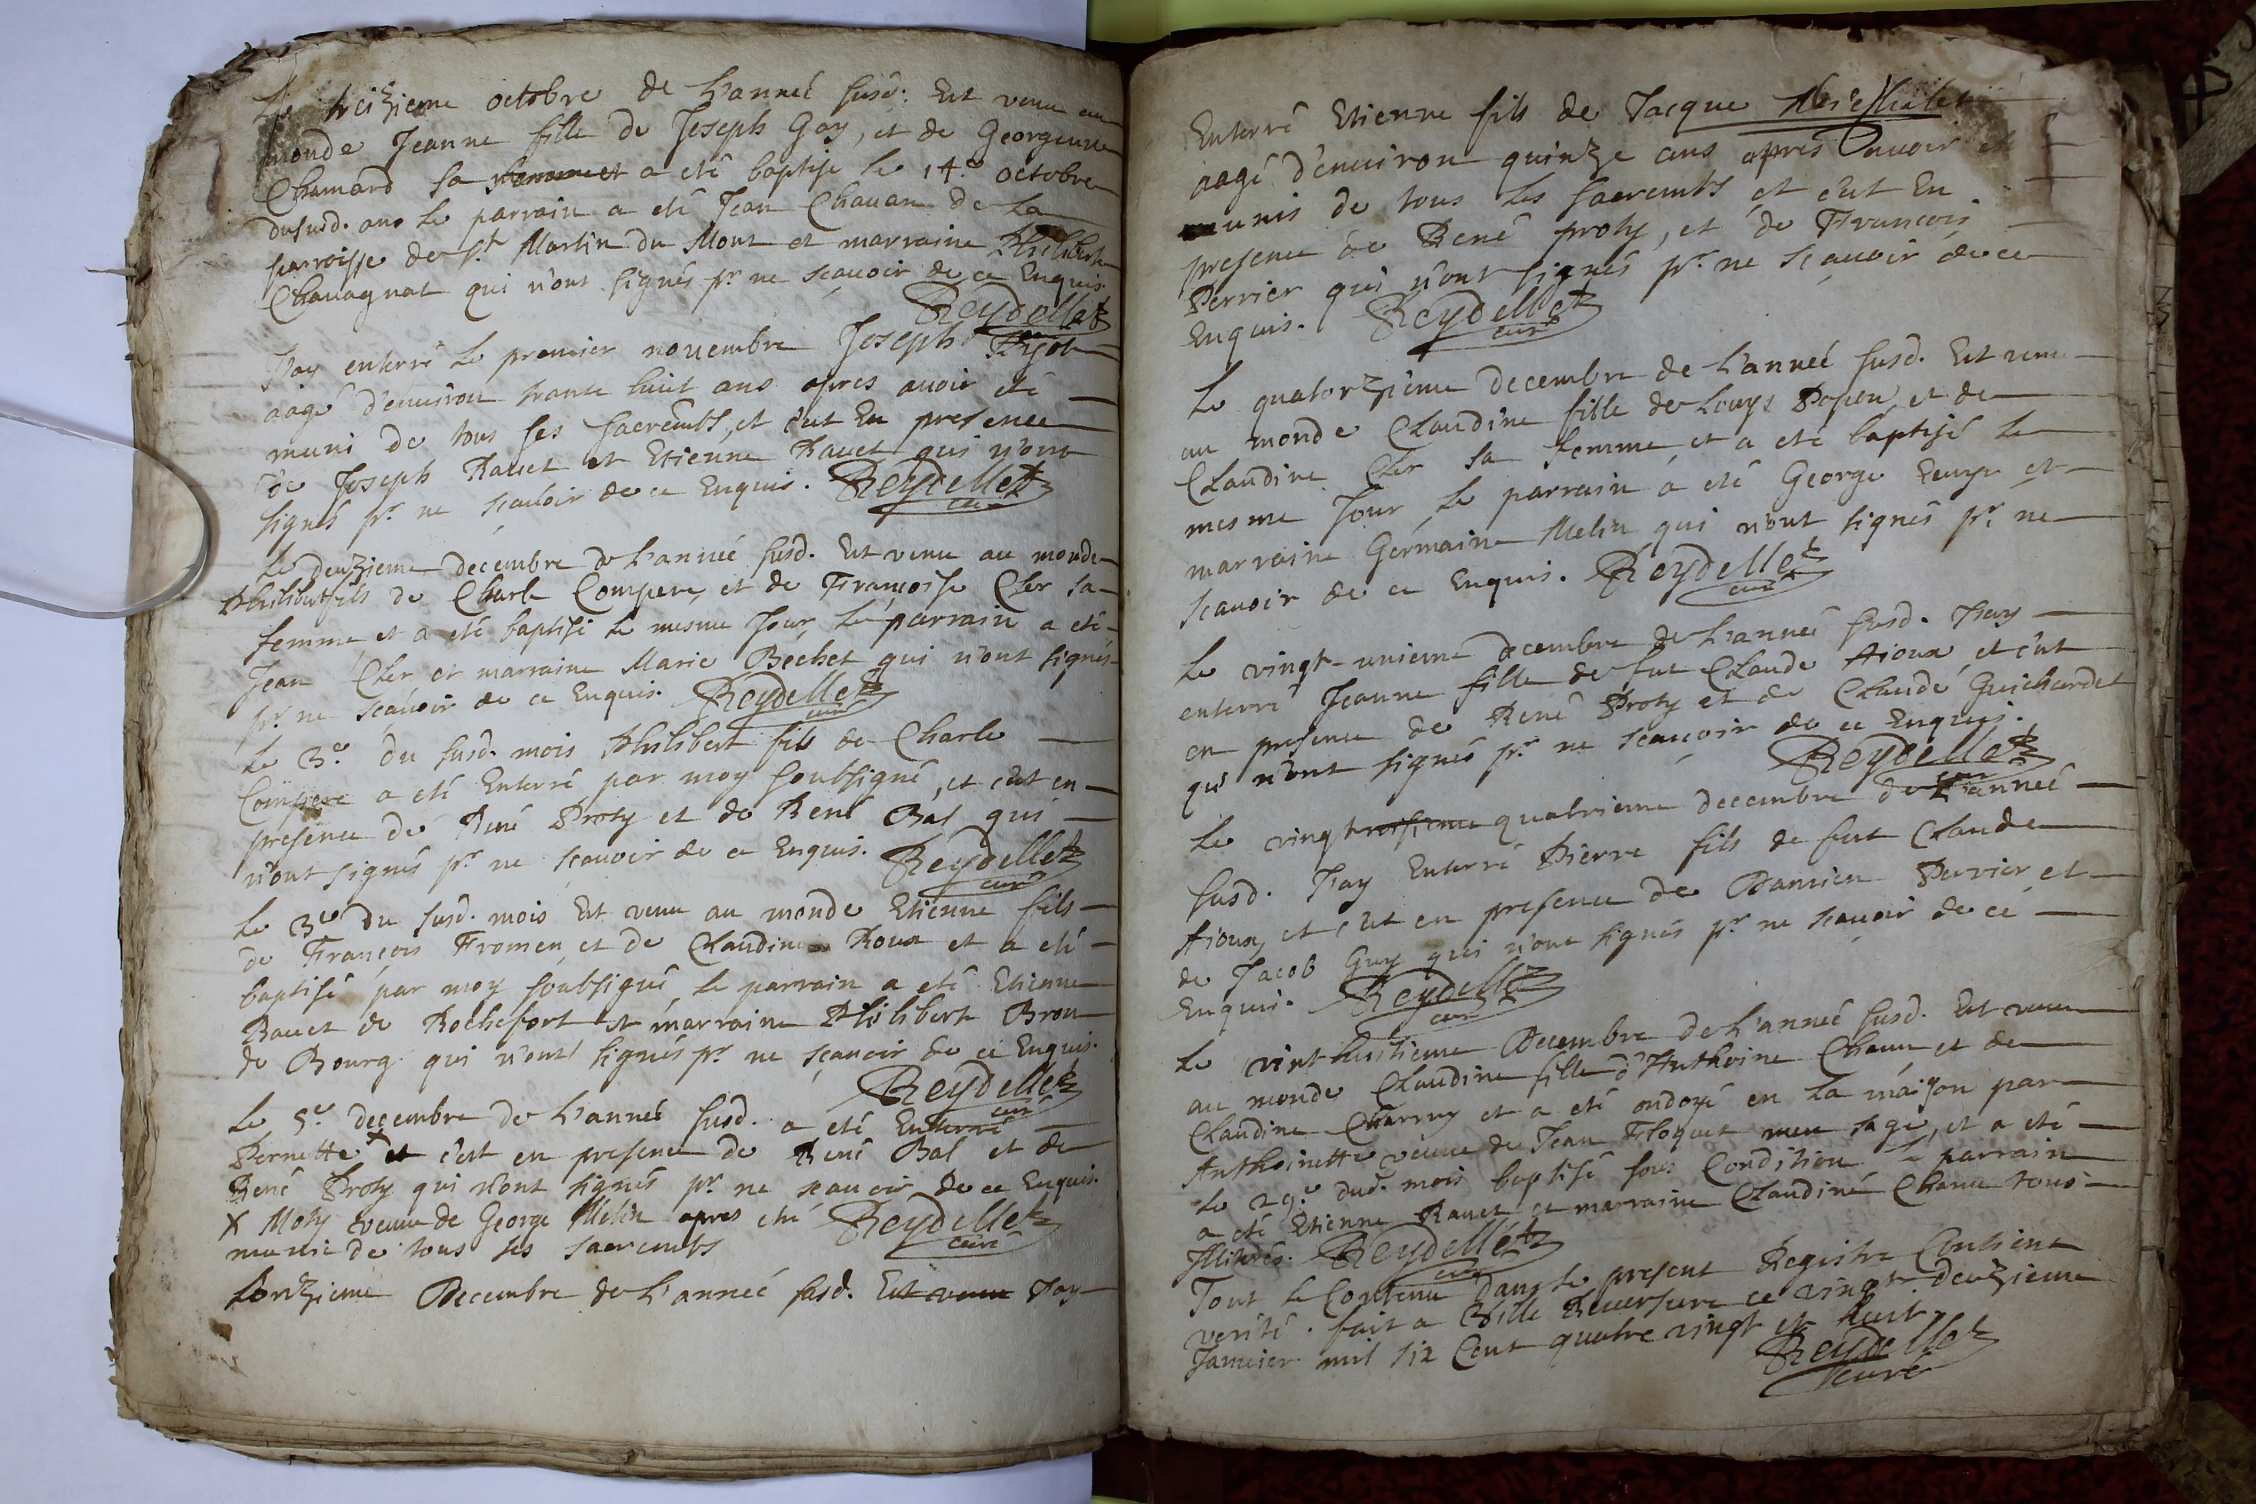 Le treizieme octobre de l'anneé susd. Est venu au
monde Jeanne fille de Joseph Gay, et de Georgeune
Chamard sa femme et a eté baptisé le 14.e octobre
dususd. ans le parrain a eté Jean Chauan de la
parroisse de st Martin du Mont et marraine Philiberte
Chauagnat qui n'ont signés pr. ne sçauoir de ce Enquis.
Reydellet
curé
J'ay enterré le premier nouembre Joseph
aagé d'enuiron trante huit ans apres auoir eté
muni de tous ses sacremts, et c'est En presence
de Joseph Rauet et Etienne Rauet qui n'ont
signés pr. ne scauoir de ce Enquis. Reydellet
curé
Le deuzieme decembre de l'anneé susd. Est venu au monde
Philibert fils de Charle Compere, et de Françoise Cler sa
femme, et a eté baptisé le mesme Jour, Le parrain a eté
Jean Cler et marraine Marie Bechet qui n'ont signés
pr. ne scauoir de ce Enquis. Reydellet
curé
Le 3.e du susd. mois Philibert fils de Charle
Compere a eté Enterré par moy soubsigné, et c'est en
presence de René Proty et de René Bal qui
n'ont signés pr. ne scauoir de ce Enquis. Reydellet
curé
Le 3.e du susd. mois Est venu au monde Etienne fils
de François Fromen, et de Claudine Roux et a eté
baptisé par moy soubsigné, le parrain a eté Etienne
Rauet de Rochefort et marraine Philiberte Brou
de Bourg qui n'ont signés pr. ne sçauoir de ce Enquis.
Reydellet
curé
Le 5.e decembre de l'anneé susd. a eté Enterré
Pernette X et c'est en presence de René Bal et de
René Proty qui n'ont signés pr. ne scauoir de ce Enquis.
X Moty veuue de George Melin apres eté Reydellet
munie de tous ses sacremts curé
L'onzieme Decembre de l'anneé susd. Est venu J'ay
Enterré Etienne fils de Jacque
aagé d'enuiron quinze ans apres auoir eté
munis de tous les sacremts et c'est En
presence de René proty, et de François
Perrier qui n'ont signés pr. ne scauoir de ce
Enquis. Reydellet
curé
Le quatorzieme decembre de l'anneé susd. Est venu
au monde Claudine fille de Louys Popon, et de
Claudine Cler sa femme, et a eté baptisé le
mesme Jour, Le parrain a eté George et
marraine Germaine Melin qui n'ont signés pr. ne
scauoir de ce Enquis. Reydellet
curé
Le vingt-unieme decembre de l'anneé susd. J'ay
enterré Jeanne fille de fut Claude Aioux, et c'est
en presence de René Proty et de Claude Guichardet
qui n'ont signés pr. ne scauoir de ce Enquis.
Reydellet
curé
Le vingt troisieme quatrieme decembre de l'anneé
susd. J'ay Enterré Pierre fils de fut Claude
Aioux, et c'est en presence de Damien Perrier et
de Jacob Guy qui n'ont signés pr. ne scauoir de ce
Enquis. Reydellet
curé
Le vint huitieme Decembre de l'anneé susd. Est venu
au monde Claudine fille d'Anthoine Chanu et de
Claudine Charmy et a eté ondoyé en la maison par
Anthoinette veuue de Jean Floquet mere sage, et a eté
Le 29.e dud. mois baptisé sous Condition. le parrain
a eté Etienne Rauet et marraine Claudine Chanu tous
Illitérés. Reydellet
curé
Tout le Contenu dans le present Registre Contient
verité. fait a Ville Reuersure ce vingt deuzieme
Januier mil six Cent quatre vingt et huit.
Reydellet
curé